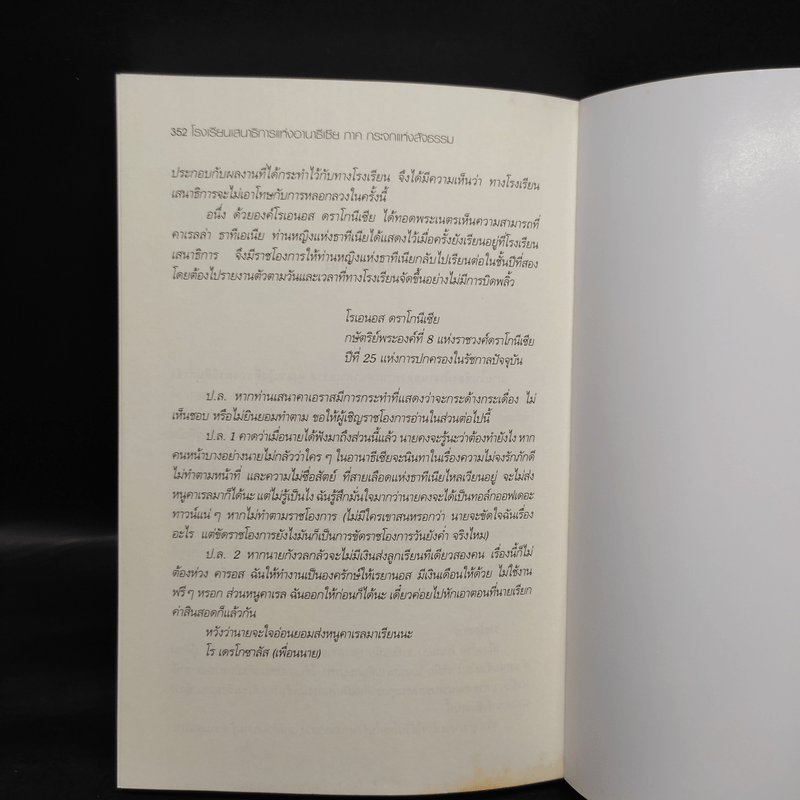 352 โรงเรียนเสนาธิการแห่งอานาธีเซีย ภาค กระจกแห่งสัจธรรม
ประกอบกับผลงานที่ได้กระทำไว้กับทางโรงเรียน จึงได้มีความเห็นว่า ทางโรงเรียน
เสนาธิการจะไม่เอาโทษกับการหลอกลวงในครั้งนี้
อนึ่ง ด้วยองค์โรเอนอส ดราโกนีเซีย ได้ทอดพระเนตรเห็นความสามารถที่
คาเรลล่า ธาทีเอเนีย ท่านหญิงแห่งธาทีเนียได้แสดงไว้เมื่อครั้งยังเรียนอยู่ที่โรงเรียน
เสนาธิการ จึงมีราชโองการให้ท่านหญิงแห่งธาทีเนียกลับไปเรียนต่อในชั้นปีที่สอง
โดยต้องไปรายงานตัวตามวันและเวลาที่ทางโรงเรียนจัดขึ้นอย่างไม่มีการบิดพลิ้ว
โรเอนอส ดราโกนีเซีย
กษัตริย์พระองค์ที่ 8 แห่งราชวงศ์ดราโกนีเซีย
ปีที่ 25 แห่งการปกครองในรัชกาลปัจจุบัน
ป.ล. หากท่านเสนาคาเอราสมีการกระทำที่แสดงว่าจะกระด้างกระเดื่อง ไม่
เห็นชอบ หรือไม่ยินยอมทำตาม ขอให้ผู้เชิญราชโองการอ่านในส่วนต่อไปนี้
ป.ล. 1 คาดว่าเมื่อนายได้ฟังมาถึงส่วนนี้แล้ว นายคงจะรู้นะว่าต้องทำยังไง หาก
คนหน้าบางอย่างนายไม่กลัวว่าใคร ๆ ในอานาธีเซียจะนินทาในเรื่องความไม่จงรักภักดี
ไม่ทำตามหน้าที่ และความไม่ซื่อสัตย์ ที่สายเลือดแห่งธาทีเนียไหลเวียนอยู่ จะไม่ส่ง
หนูคาเรลมาก็ได้นะ แต่ไม่รู้เป็นไง ฉันรู้สึกมั่นใจมากว่านายคงจะได้เป็นทอล์กออฟเดอะ
ทาวน์แน่ ๆ หากไม่ทำตามราชโองการ (ไม่มีใครเขาสนหรอกว่า นายจะขัดใจฉันเรื่อง
อะไร แต่ขัดราชโองการยังไงมันก็เป็นการขัดราชโองการวันยังค่ำ จริงไหม)
ป.ล. 2 หากนายกังวลกลัวจะไม่มีเงินส่งลูกเรียนทีเดียวสองคน เรื่องนี้ก็ไม่
ต้องห่วง คารอส ฉันให้ทำงานเป็นองครักษ์ให้เรยานอส มีเงินเดือนให้ด้วย ไม่ใช้งาน
ฟรี ๆ หรอก ส่วนหนูคาเรล ฉันออกให้ก่อนก็ได้นะ เดี๋ยวค่อยไปหักเอาตอนที่นายเรียก
ค่าสินสอดก็แล้วกัน
หวังว่านายจะใจอ่อนยอมส่งหนูคาเรลมาเรียนนะ
โร เดรโกซาลัส (เพื่อนนาย)